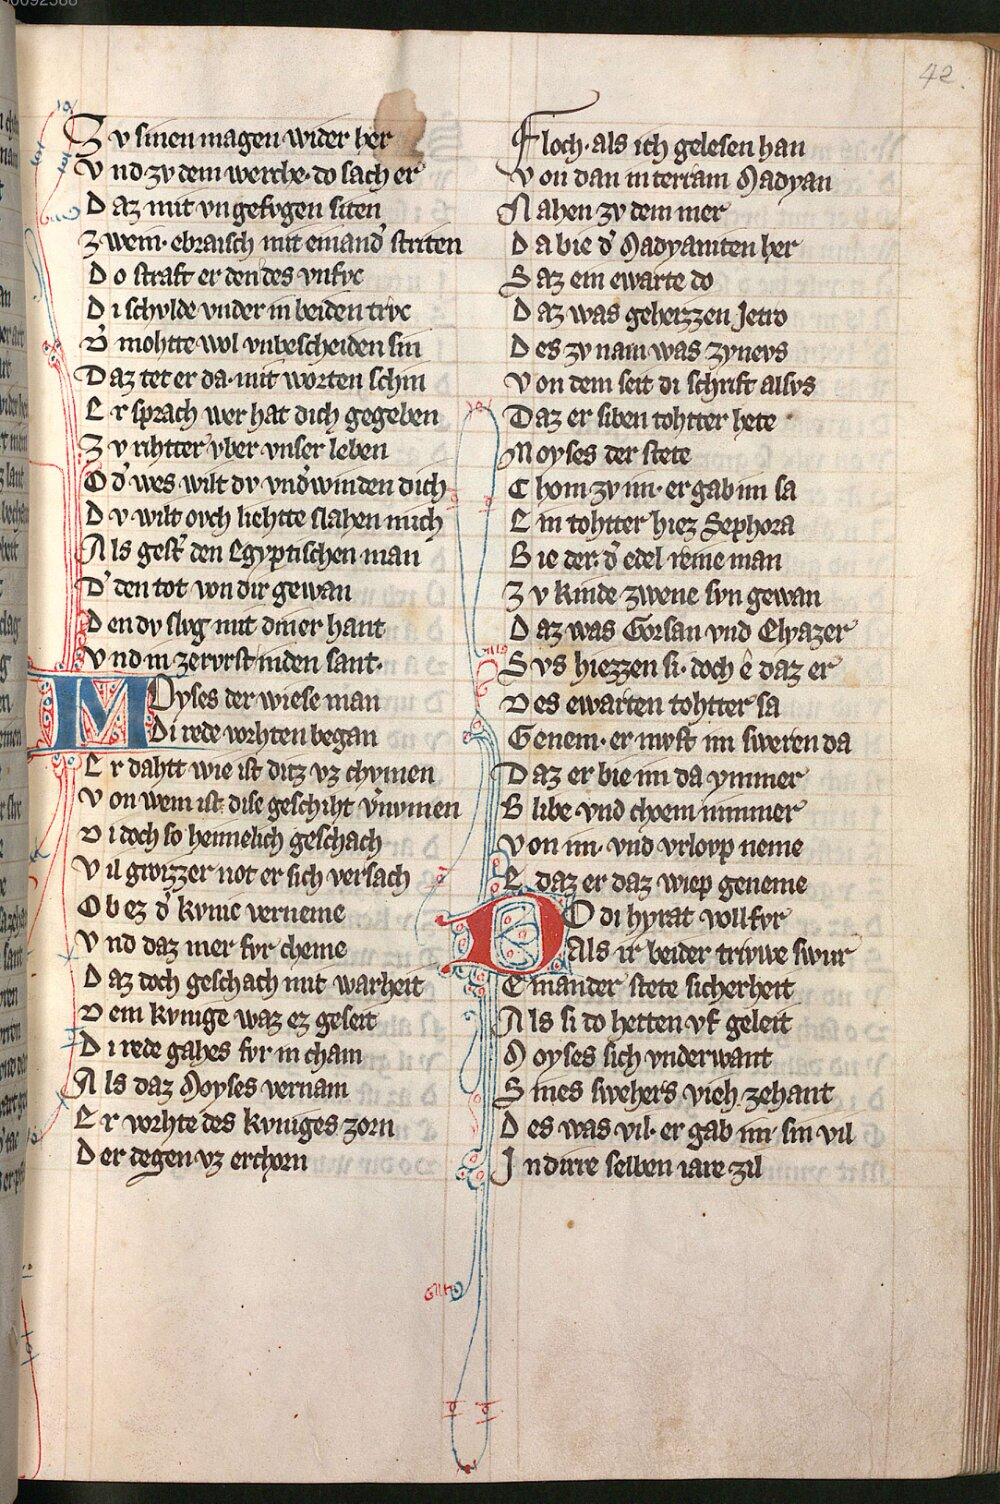 42.
Zv sinen magen wider her
Vnd zv dem werche. do sach er
Daz mit vngefvgen siten
Zwem. ebraisch mit einand᷑ striten
Do straft er den des vnfvc
Di schvlde vnder in beiden trvc
V᷑ mohtte wol vnbescheiden sin
Daz tet er da. mit worten schin
Er sprach wer hat dich gegeben
Zv rihtter vber vnser leben
Od᷑ wes wilt dv vnd᷑winden dich
Dv wilt ovch liehtte slahen mich
Als gest᷑ den Egyptischen man
D᷑ den tot von dir gewan
Den dv slvg mit diner hant
Vnd in zervrst inden sant.
Moyses der wiese man
Di rede vorhten began
Er dahtt wie ist ditz vz chvmen
Von wem ist dise geschiht v᷑nvmen
Di doch so heimelich geschach
Vil gwizzer not er sich versach
Ob ez d᷑ kvnic verneme
Vnd daz mer fvr cheme
Daz doch geschach mit warheit
Dem kvnige waz ez geseit
Di rede gahes fvr in cham
Als daz Moyses vernam
Er vorhte des kvniges zorn
Der degen vz erchorn
Floch. als ich gelesen han
Von dan in terram Madyan
Nahen zv dem mer
Da bie d᷑ Madyaniten her
Saz ein ewarte do
Daz was geheizzen Jetro
Des zv nam was zvnevs
Von dem seit di schrift alsvs
Daz er siben tohtter hete
Moyses der stete
Chom zv im. er gab im sa
Ein tohtter hiez Sephora
Bie der. d᷑ edel reine man
Zv kinde zwene svn gewan
Daz was Gorsan vnd Elyazer
Svs hiezzen si. doch ê daz er
Des ewarten tohtter sa
Genem. er mvst im sweren da
Daz er bie im da ymmer
Blibe vnd choem nimmer
Von im. vnd vrlovp neme
E daz er daz wiep geneme
Do di hyrat vollfvr
Als ir beider trivwe swur
Einander stete sicherheit
Als si do hetten vf geleit
Moyses sich vnderwant
Sines swehers vieh zehant
Des was vil. er gab im sin vil
In dirre selben iare zil